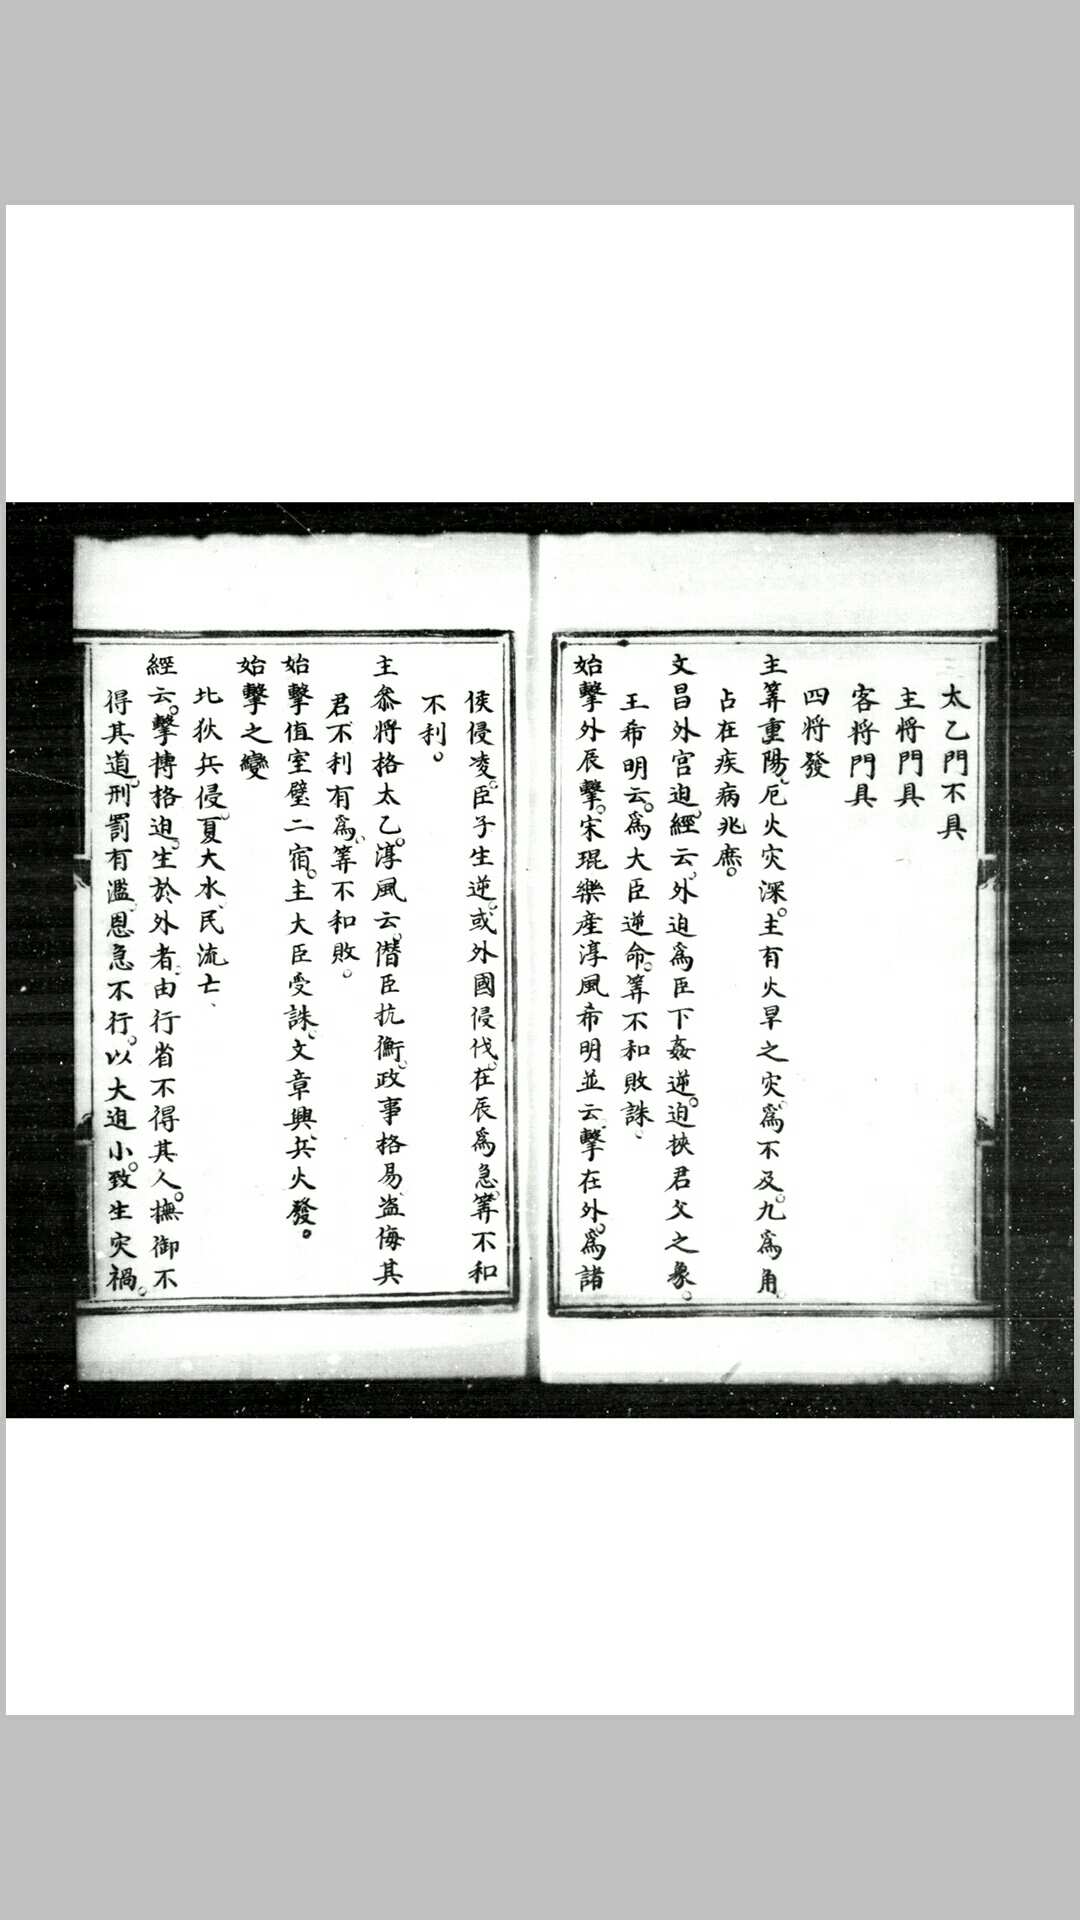 太乙門不具
主将門具
客将門具
四将發
主筭重陽。厄火灾深。主有火旱之灾、為不及。九為角。
占在疾病兆庶。
文昌外宮迫。經云、外迫為臣下姦逆。迫挾君父之象。
王希明云。為大臣逆命。筭不和敗誅、
始擊外辰擊。宋琨樂產淳風希明並云、擊在外。為諸
侯侵凌。臣子生逆。或外國侵伐。在辰為急。筭不和
不利。
主叅將格太乙。淳風云。僭臣抗衡。政事格易、盗侮其
君、不利有為、筭不和敗。
始擊值室璧二宿。主大臣受誅、文章興、兵火發。
始擊之變
北狄兵侵、夏大水、民流亡、
經云。擊摶格迫。生於外者、由行省不得其人。撫御不
得其道、刑罰有濫、恩急不行。以大迫小。致生灾禍。